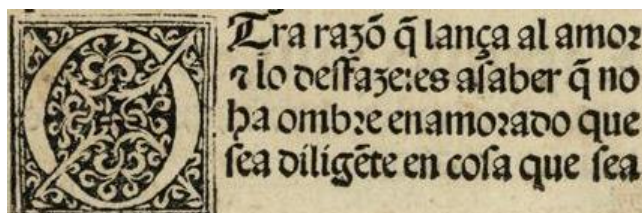 OTra razõ q̃ lança al amoꝛ
⁊ lo deſfaze:es aſaber q̃ no
ha ombꝛe enamoꝛado que
ſea diligẽte en coſa que ſea